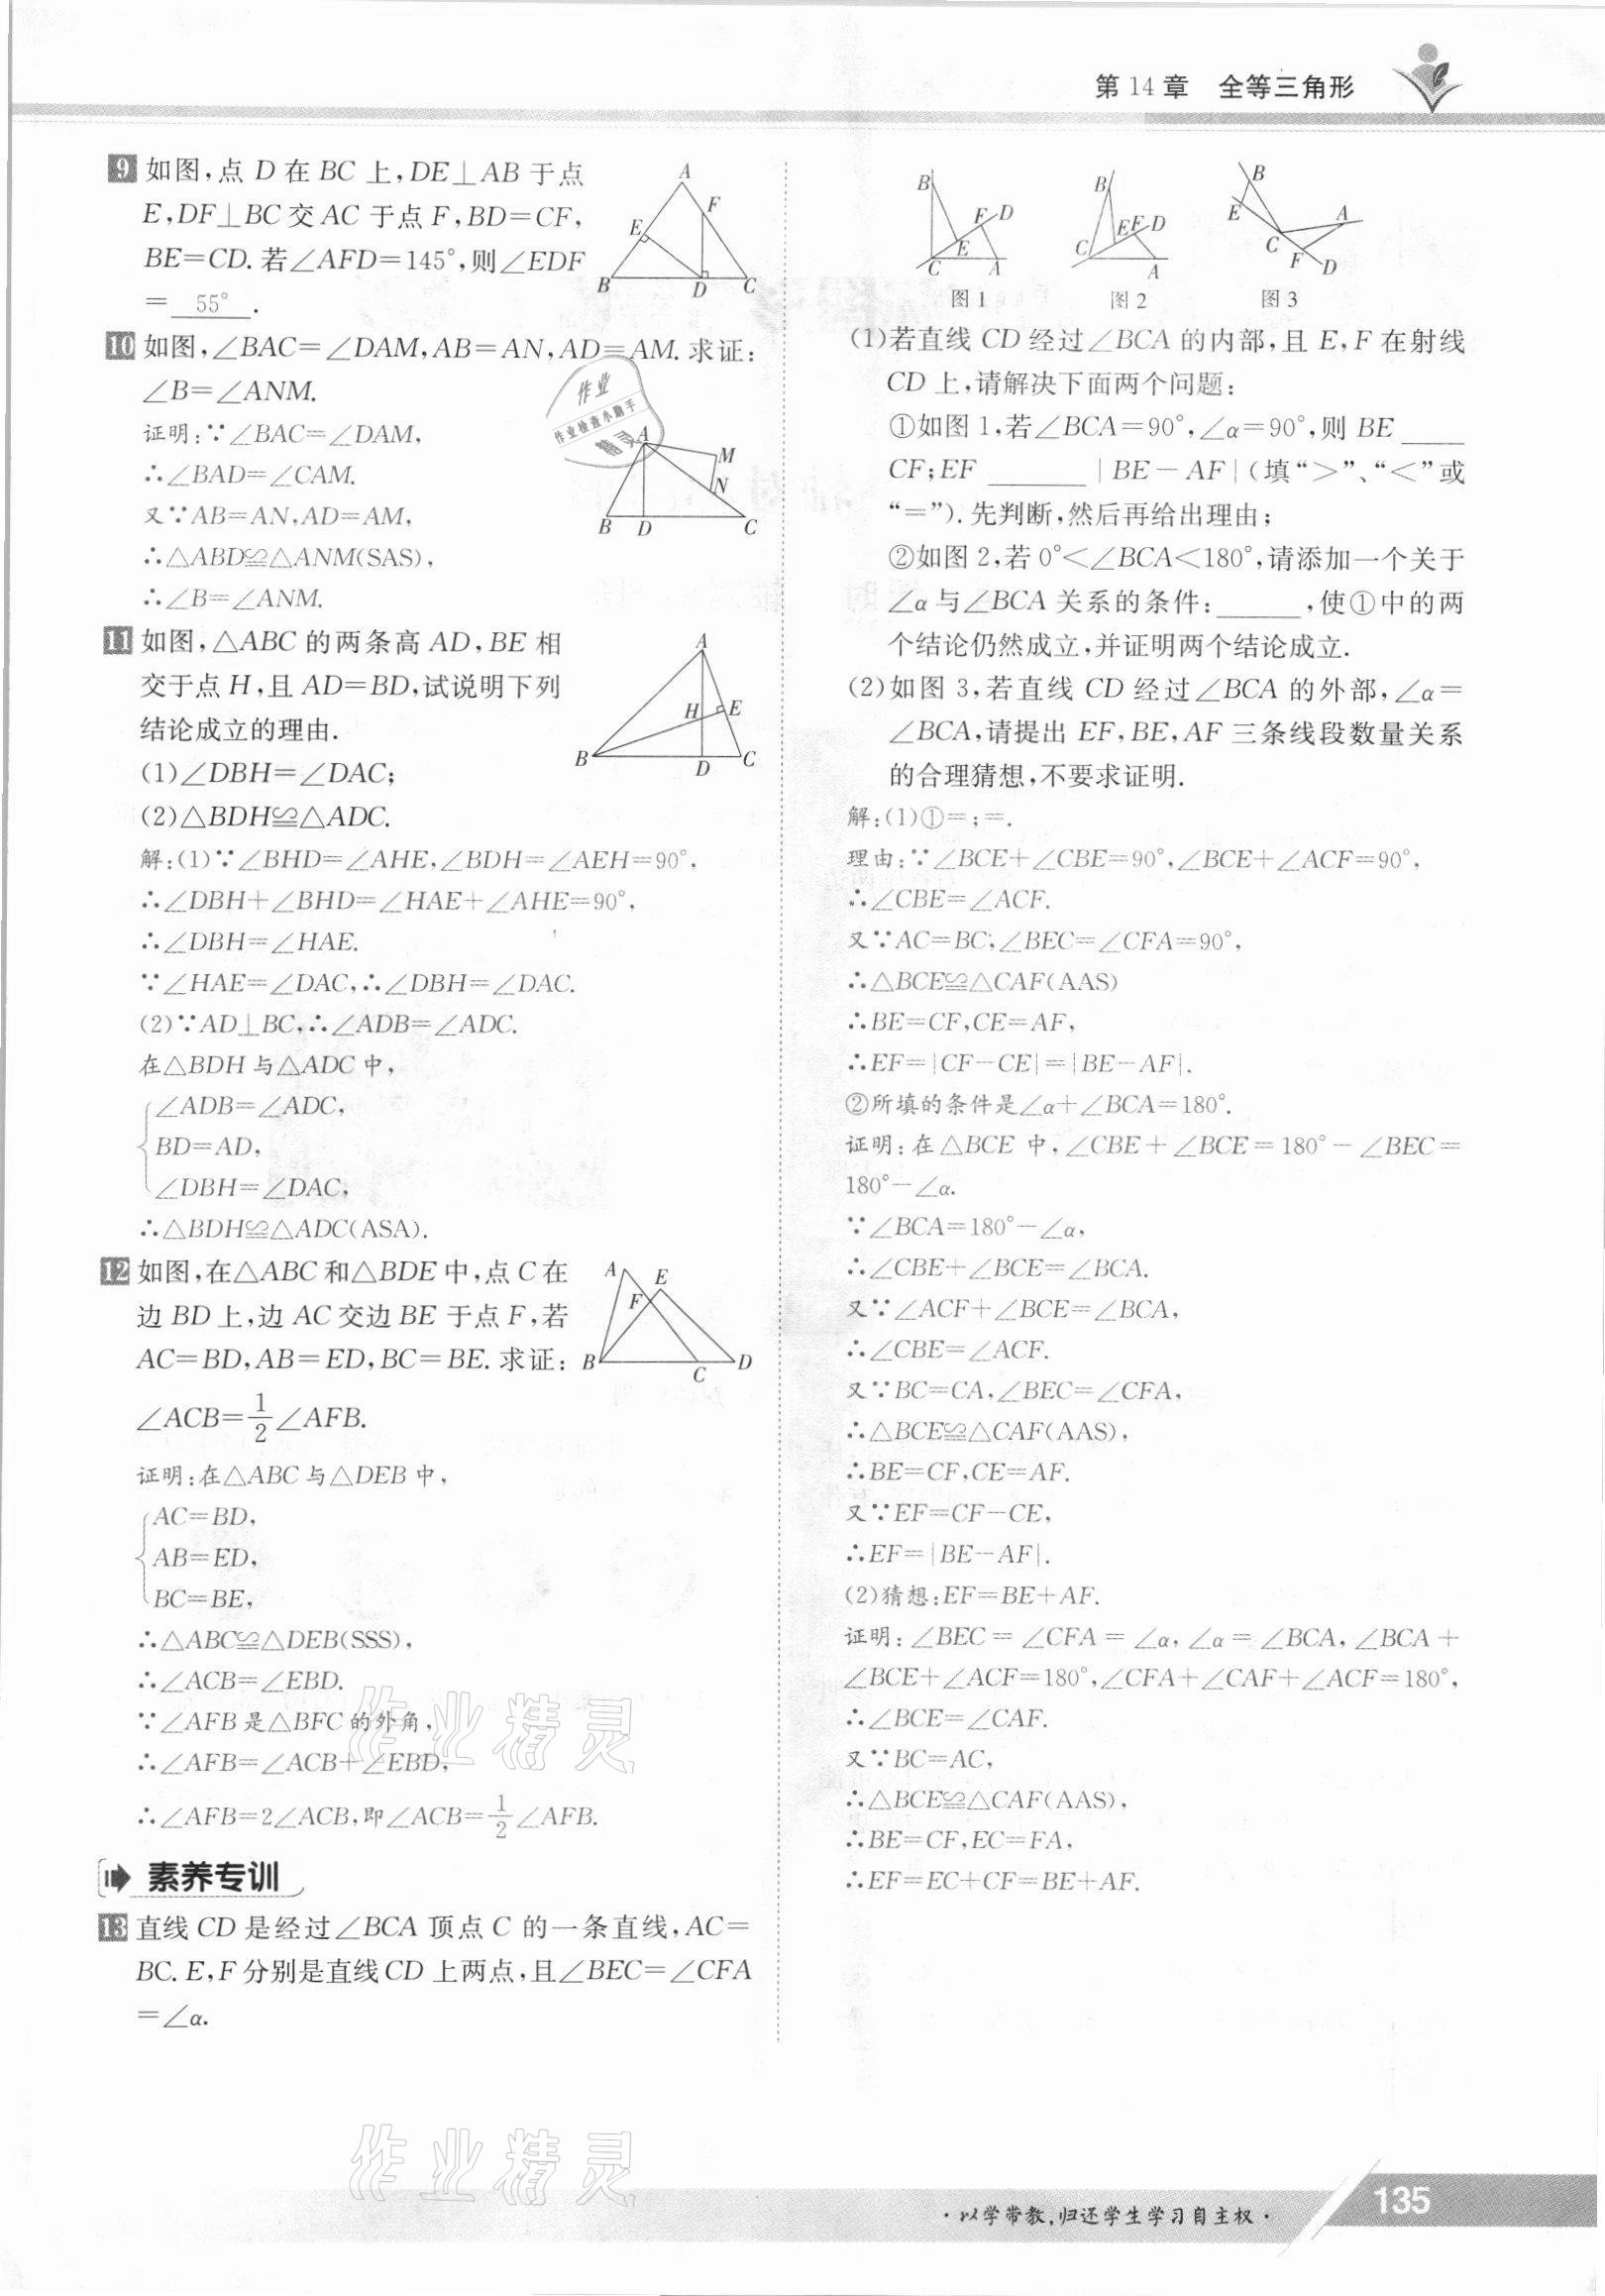 第14章 全等三角形
9 如图,点 D 在 BC 上,DE⊥AB 于点
E,DF⊥BC 交 AC 于点 F,BD=CF,
BE=CD.若∠AFD=145°,则∠EDF
= 55° .
A
F
E
B
D
C
10 如图,∠BAC=∠DAM,AB=AN,AD=AM.求证:
∠B=∠ANM.
证明:∵∠BAC=∠DAM,
∴∠BAD=∠CAM.
又∵AB=AN,AD=AM,
∴△ABD≌△ANM(SAS),
∴∠B=∠ANM.
作业
作业检查小助手
精灵
A
M
N
B
D
C
11 如图,△ABC 的两条高 AD,BE 相
交于点 H,且 AD=BD,试说明下列
结论成立的理由.
(1)∠DBH=∠DAC;
(2)△BDH≌△ADC.
A
H
E
B
D
C
解:(1)∵∠BHD=∠AHE,∠BDH=∠AEH=90°,
∴∠DBH+∠BHD=∠HAE+∠AHE=90°,
∴∠DBH=∠HAE.
∵∠HAE=∠DAC,∴∠DBH=∠DAC.
(2)∵AD⊥BC,∴∠ADB=∠ADC.
在△BDH 与△ADC 中,
∠ADB=∠ADC,
BD=AD,
∠DBH=∠DAC,
∴△BDH≌△ADC(ASA).
12 如图,在△ABC 和△BDE 中,点 C 在
边 BD 上,边 AC 交边 BE 于点 F,若
AC=BD,AB=ED,BC=BE.求证:
∠ACB=1/2∠AFB.
A
E
F
B
C
D
证明:在△ABC 与△DEB 中,
AC=BD,
AB=ED,
BC=BE,
∴△ABC≌△DEB(SSS),
∴∠ACB=∠EBD.
∵∠AFB 是△BFC 的外角,
∴∠AFB=∠ACB+∠EBD,
∴∠AFB=2∠ACB,即∠ACB=1/2∠AFB.
作业精灵
素养专训
13 直线 CD 是经过∠BCA 顶点 C 的一条直线,AC=
BC.E,F 分别是直线 CD 上两点,且∠BEC=∠CFA
=∠α.
B
F
D
E
C
A
图1
B
E
F
D
C
A
图2
B
E
A
C
F
D
图3
(1)若直线 CD 经过∠BCA 的内部,且 E,F 在射线
CD 上,请解决下面两个问题:
①如图1,若∠BCA=90°,∠α=90°,则 BE ____
CF;EF ______ |BE-AF|(填“>”、“<”或
“=”).先判断,然后再给出理由;
②如图2,若 0°<∠BCA<180°,请添加一个关于
∠α与∠BCA 关系的条件:______,使①中的两
个结论仍然成立,并证明两个结论成立.
(2)如图3,若直线 CD 经过∠BCA 的外部,∠α=
∠BCA,请提出 EF,BE,AF 三条线段数量关系
的合理猜想,不要求证明.
解:(1)①=;=.
理由:∵∠BCE+∠CBE=90°,∠BCE+∠ACF=90°,
∴∠CBE=∠ACF.
又∵AC=BC;∠BEC=∠CFA=90°,
∴△BCE≌△CAF(AAS)
∴BE=CF,CE=AF,
∴EF=|CF-CE|=|BE-AF|.
②所填的条件是∠α+∠BCA=180°.
证明:在△BCE 中,∠CBE+∠BCE=180°-∠BEC=
180°-∠α.
∵∠BCA=180°-∠α,
∴∠CBE+∠BCE=∠BCA.
又∵∠ACF+∠BCE=∠BCA,
∴∠CBE=∠ACF.
又∵BC=CA,∠BEC=∠CFA,
∴△BCE≌△CAF(AAS),
∴BE=CF,CE=AF.
又∵EF=CF-CE,
∴EF=|BE-AF|.
(2)猜想:EF=BE+AF.
证明:∠BEC=∠CFA=∠α,∠α=∠BCA,∠BCA+
∠BCE+∠ACF=180°,∠CFA+∠CAF+∠ACF=180°,
∴∠BCE=∠CAF.
又∵BC=AC,
∴△BCE≌△CAF(AAS),
∴BE=CF,EC=FA,
∴EF=EC+CF=BE+AF.
作业精灵
·以学带教,归还学生学习自主权·
135